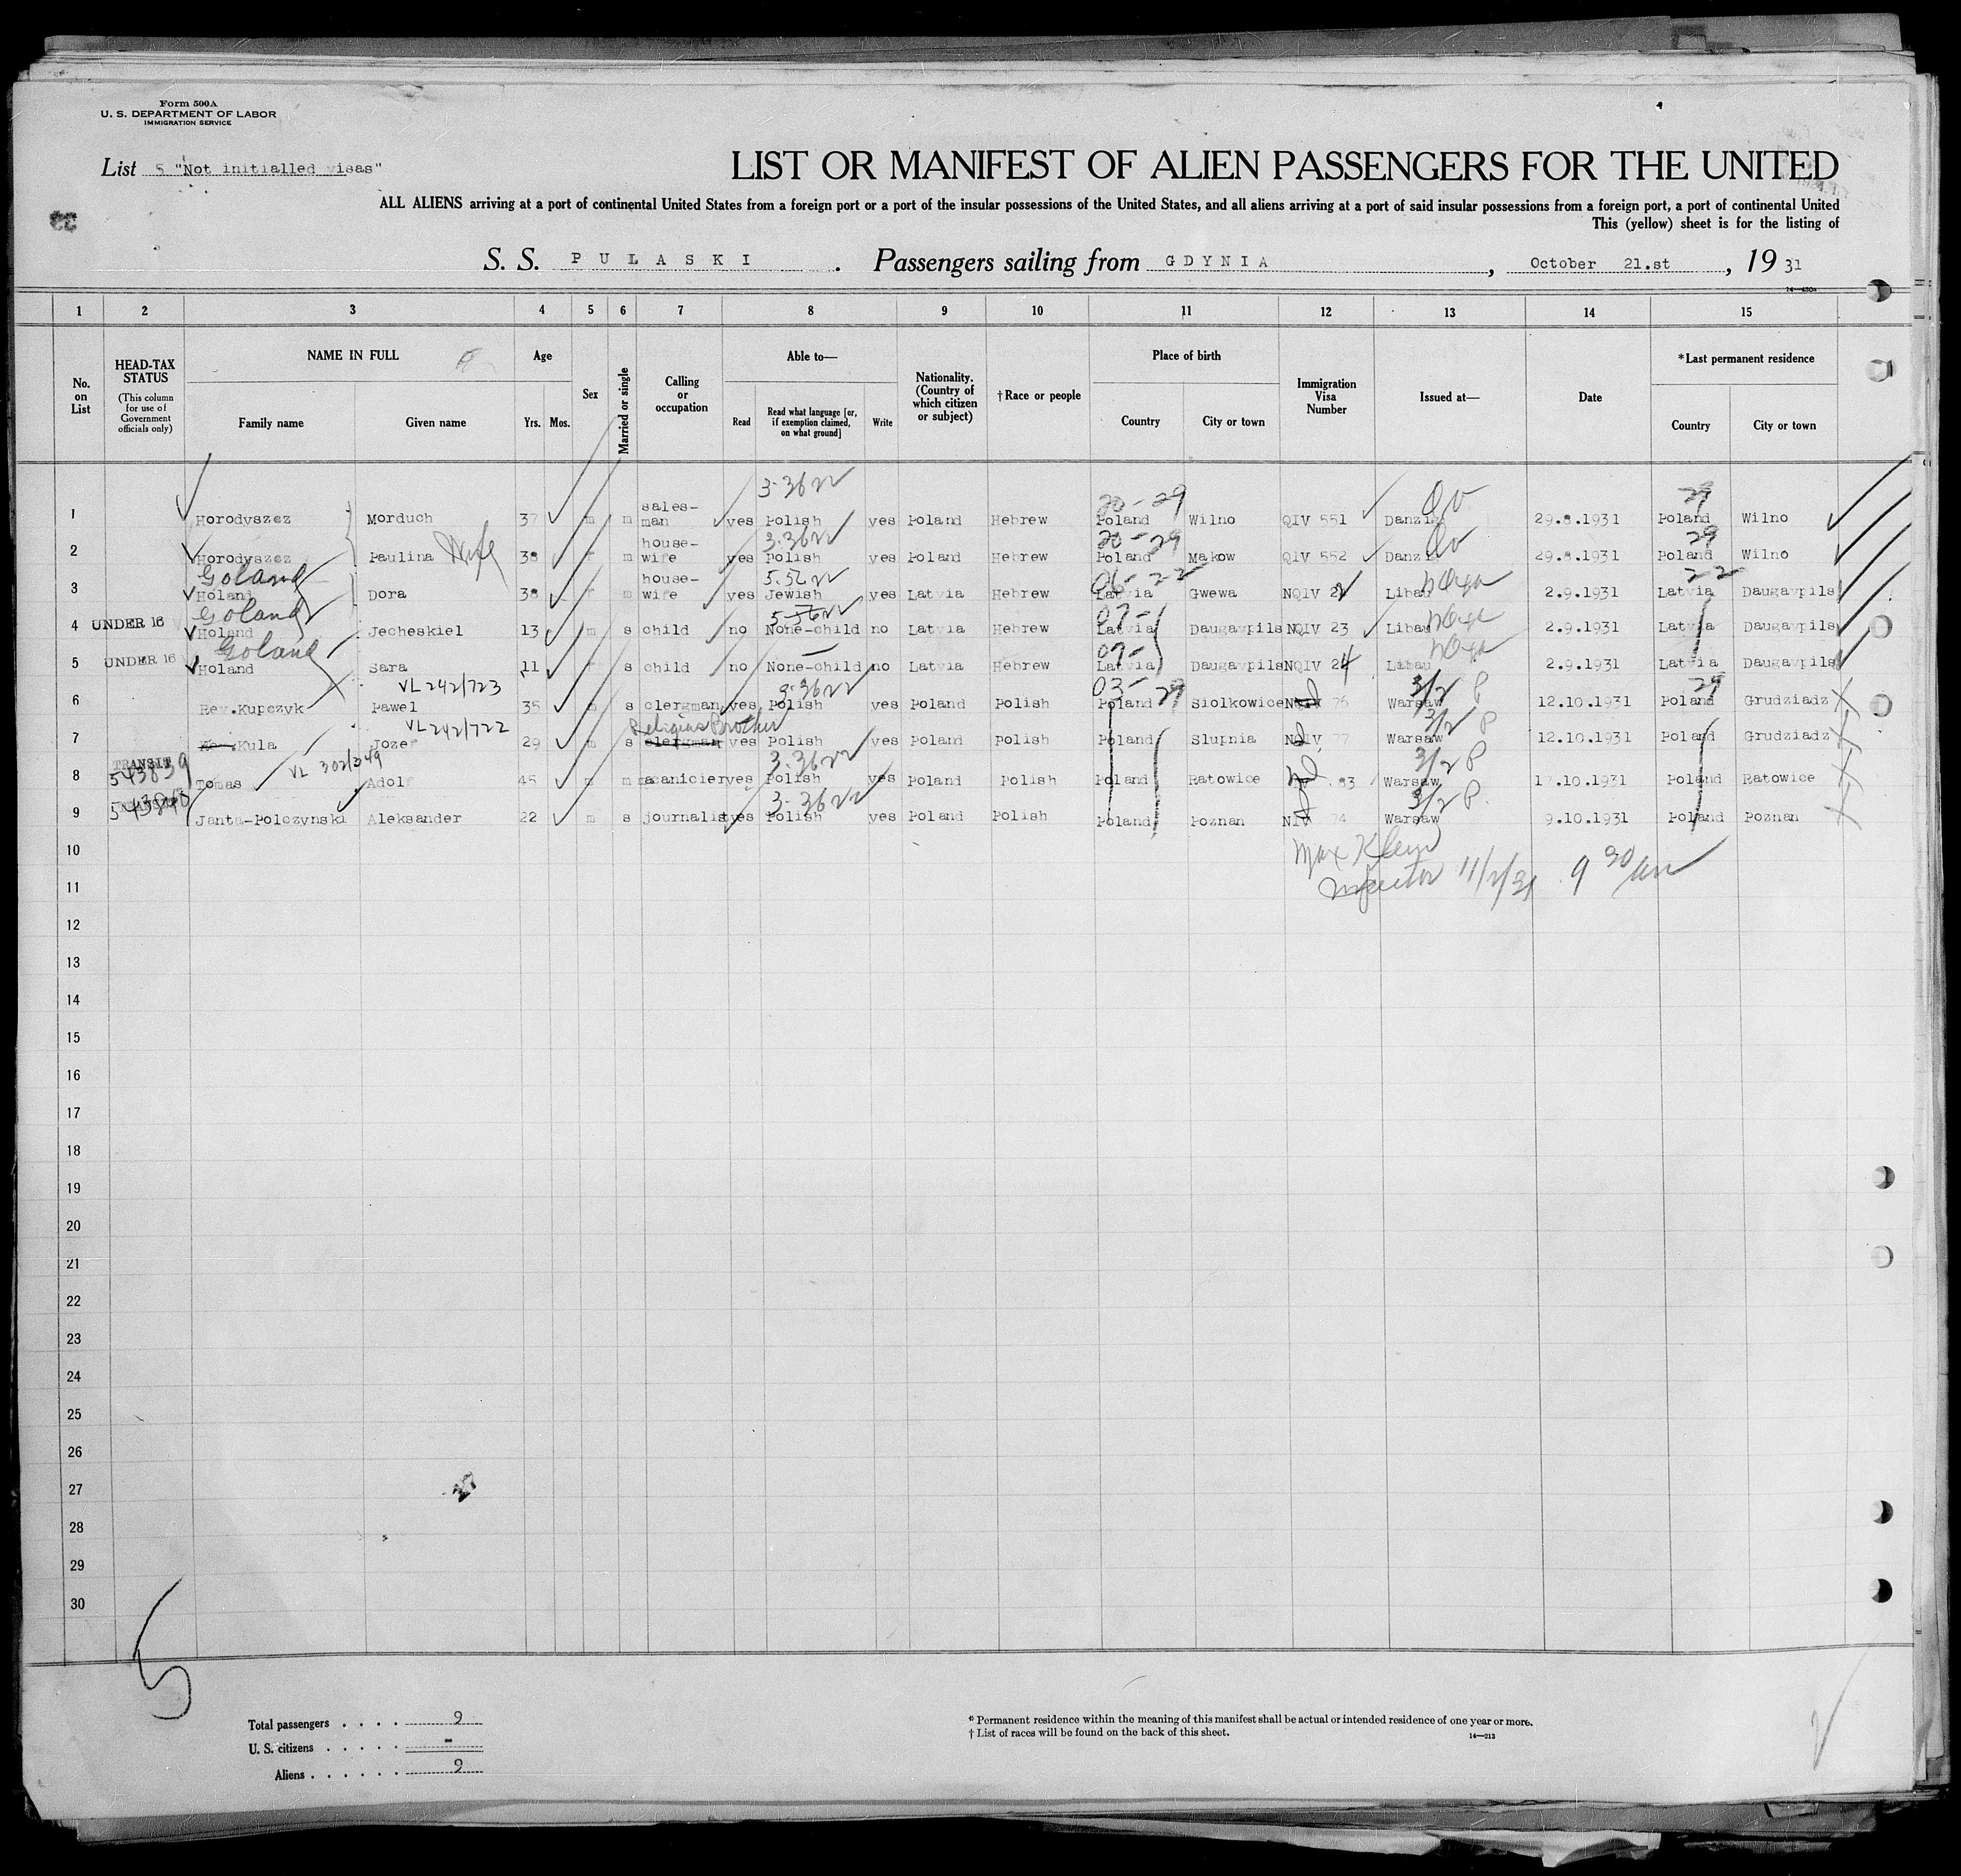 Form 500A
U. S. DEPARTMENT OF LABOR
IMMIGRATION SERVICE
List 5 "Not initialled visas"
LIST OR MANIFEST OF ALIEN PASSENGERS FOR THE UNITED
ALL ALIENS arriving at a port of continental United States from a foreign port or a port of the insular possessions of the United States, and all aliens arriving at a port of said insular possessions from a foreign port, a port of continental United
This (yellow) sheet is for the listing of
S. S. PULASKI . Passengers sailing from GDYNIA , October 21.st , 19 31
1 2 3 4 5 6 7 8 9 10 11 12 13 14 15
No. on List
HEAD-TAX STATUS (This column for use of Government officials only)
NAME IN FULL Family name Given name
Age Yrs. Mos.
Sex
Married or single
Calling or occupation
Able to— Read Read what language [or, if exemption claimed, on what ground] Write
Nationality. (Country of which citizen or subject)
†Race or people
Place of birth Country City or town
Immigration Visa Number
Issued at—
Date
*Last permanent residence Country City or town
3-36 20-29 29
1 Horodyszez Morduch 37 m m sales-man yes Polish yes Poland Hebrew Poland Wilno QIV 551 Danzig 29.8.1931 Poland Wilno
3-36 20-29 29
2 Horodyszez Paulina Wife 38 f m house-wife yes Polish yes Poland Hebrew Poland Makow QIV 552 Danzig 29.8.1931 Poland Wilno
Goland 06-22 22
3 Holand Dora 38 f m house-wife yes Jewish yes Latvia Hebrew Latvia Gwewa NQIV 22 Libau 2.9.1931 Latvia Daugavpils
Goland 07-
4 UNDER 16 Holand Jecheskiel 13 m s child no None-child no Latvia Hebrew Latvia Daugavpils NQIV 23 Libau 2.9.1931 Latvia Daugavpils
Goland 07-
5 UNDER 16 Holand Sara 11 f s child no None-child no Latvia Hebrew Latvia Daugavpils NQIV 24 Libau 2.9.1931 Latvia Daugavpils
VL242/723 3-36 03-29 3/2 P 29
6 Rev.Kupczyk Pawel 35 m s clergman yes Polish yes Poland Polish Poland Siolkowice 76 Warsaw 12.10.1931 Poland Grudziadz
VL242/722 Religius Brother 3/2 P
7 Kula Jozef 29 m s clergman yes Polish Poland Polish Poland Slupnia 77 Warsaw 12.10.1931 Poland Grudziadz
TRANSIT 543839 VL 302/349 3-36 3/2 P
8 Tomas Adolf 45 m m macanicier yes Polish yes Poland Polish Poland Katowice 83 Warsaw 17.10.1931 Poland Katowice
543840 3-36 3/2 P.
9 Janta-Polczynski Aleksander 22 m s journalist yes Polish yes Poland Polish Poland Poznan NIV 74 Warsaw 9.10.1931 Poland Poznan
10 Max Klein
11 Inspector 11/2/31 9 30 am
12
13
14
15
16
17
18
19
20
21
22
23
24
25
26
27
28
29
30
5
Total passengers . . . . 9
U. S. citizens . . . . . -
Aliens . . . . . . 9
* Permanent residence within the meaning of this manifest shall be actual or intended residence of one year or more.
† List of races will be found on the back of this sheet. 14—213